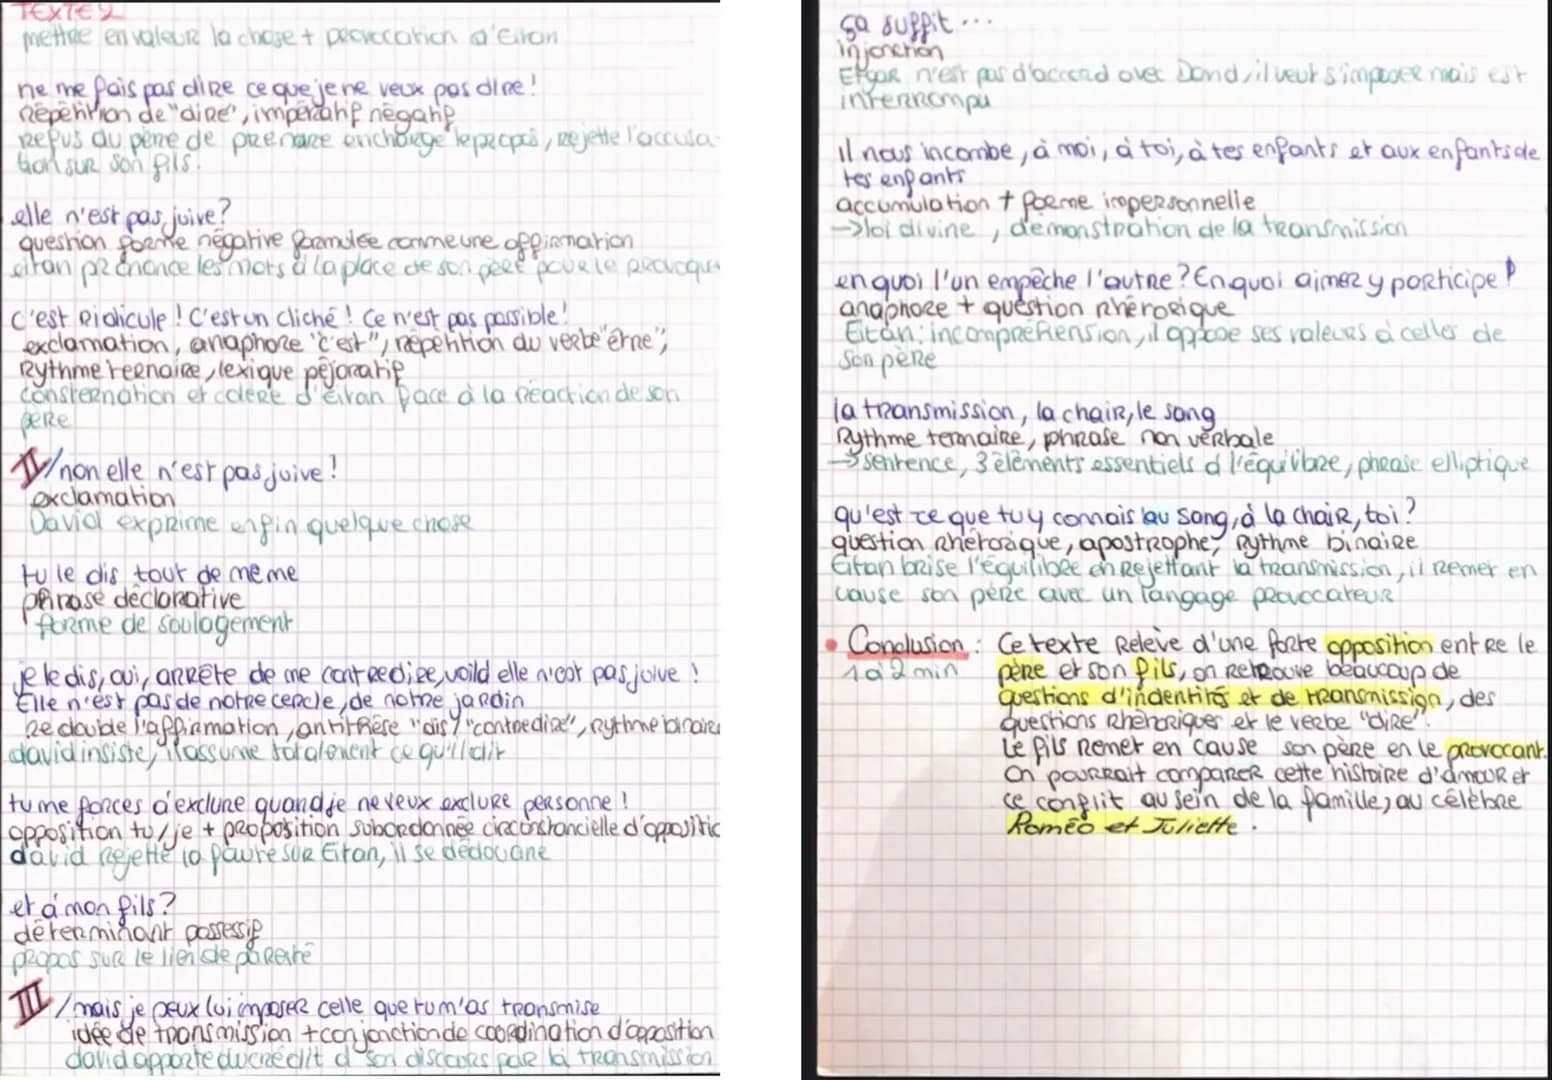 TEXTE 2
mettre en valeur la chose + provocation d'Eitan
ne me fais pas dire ce que je ne veux pas dire !
Répétition de "dire", impératif négatif
refus du père de prendre en charge le propos, rejette l'accusa-
tion sur son fils.
elle n'est pas juive ?
question forme négative formulée comme une affirmation
eitan prononce les mots à la place de son père pour le provoque
c'est ridicule ! C'est un cliché ! Ce n'est pas possible !
exclamation, anaphore "c'est", répétition du verbe "être",
Rythme ternaire, lexique péjoratif
consternation et colère d'Eitan face à la réaction de son
père
II/ non elle n'est pas juive !
exclamation
David exprime enfin quelque chose
tu le dis tout de meme
phrase déclarative
forme de soulagement
je le dis, oui, arrête de me contredire, voilà elle n'est pas juive !
Elle n'est pas de notre cercle, de notre jardin
redouble l'affirmation, antithèse "dis"/"contredire", rythme binaire
david insiste, il assume totalement ce qu'il dit
tu me forces d'exclure quand je ne veux exclure personne !
opposition tu/je + proposition subordonnée circonstancielle d'oppositio
david rejette la faute sur Eitan, il se dédouane
et à mon fils ?
déterminant possessif
propos sur le lien de parenté
III/ mais je peux lui imposer celle que tu m'as transmise
idée de transmission + conjonction de coordination d'opposition
david apporte du crédit à son discours par la transmission
ça suffit ...
injonction
Etgar n'est pas d'accord avec David, il veut s'imposer mais est
interrompu
Il nous incombe, à moi, à toi, à tes enfants et aux enfants de
tes enfants
accumulation + forme impersonnelle
→ loi divine, démonstration de la transmission
en quoi l'un empêche l'autre ? En quoi aimer y participe ?
anaphore + question rhétorique
Eitan : incompréhension, il oppose ses valeurs à celles de
son père
la transmission, la chair, le sang
Rythme ternaire, phrase non verbale
→ sentence, 3 éléments essentiels à l'équilibre, phrase elliptique
qu'est ce que tu y connais au sang, à la chair, toi ?
question rhétorique, apostrophe, rythme binaire
Eitan brise l'équilibre en rejettant la transmission, il remet en
cause son père avec un langage provocateur
• Conclusion : Ce texte relève d'une forte opposition entre le
1 à 2 min père et son fils, on retrouve beaucoup de
questions d'indentités et de transmission, des
questions rhétoriques et le verbe "dire".
Le fils remet en cause son père en le provocant.
On pourrait comparer cette histoire d'amour et
ce conflit au sein de la famille, au célèbre
Roméo et Juliette.